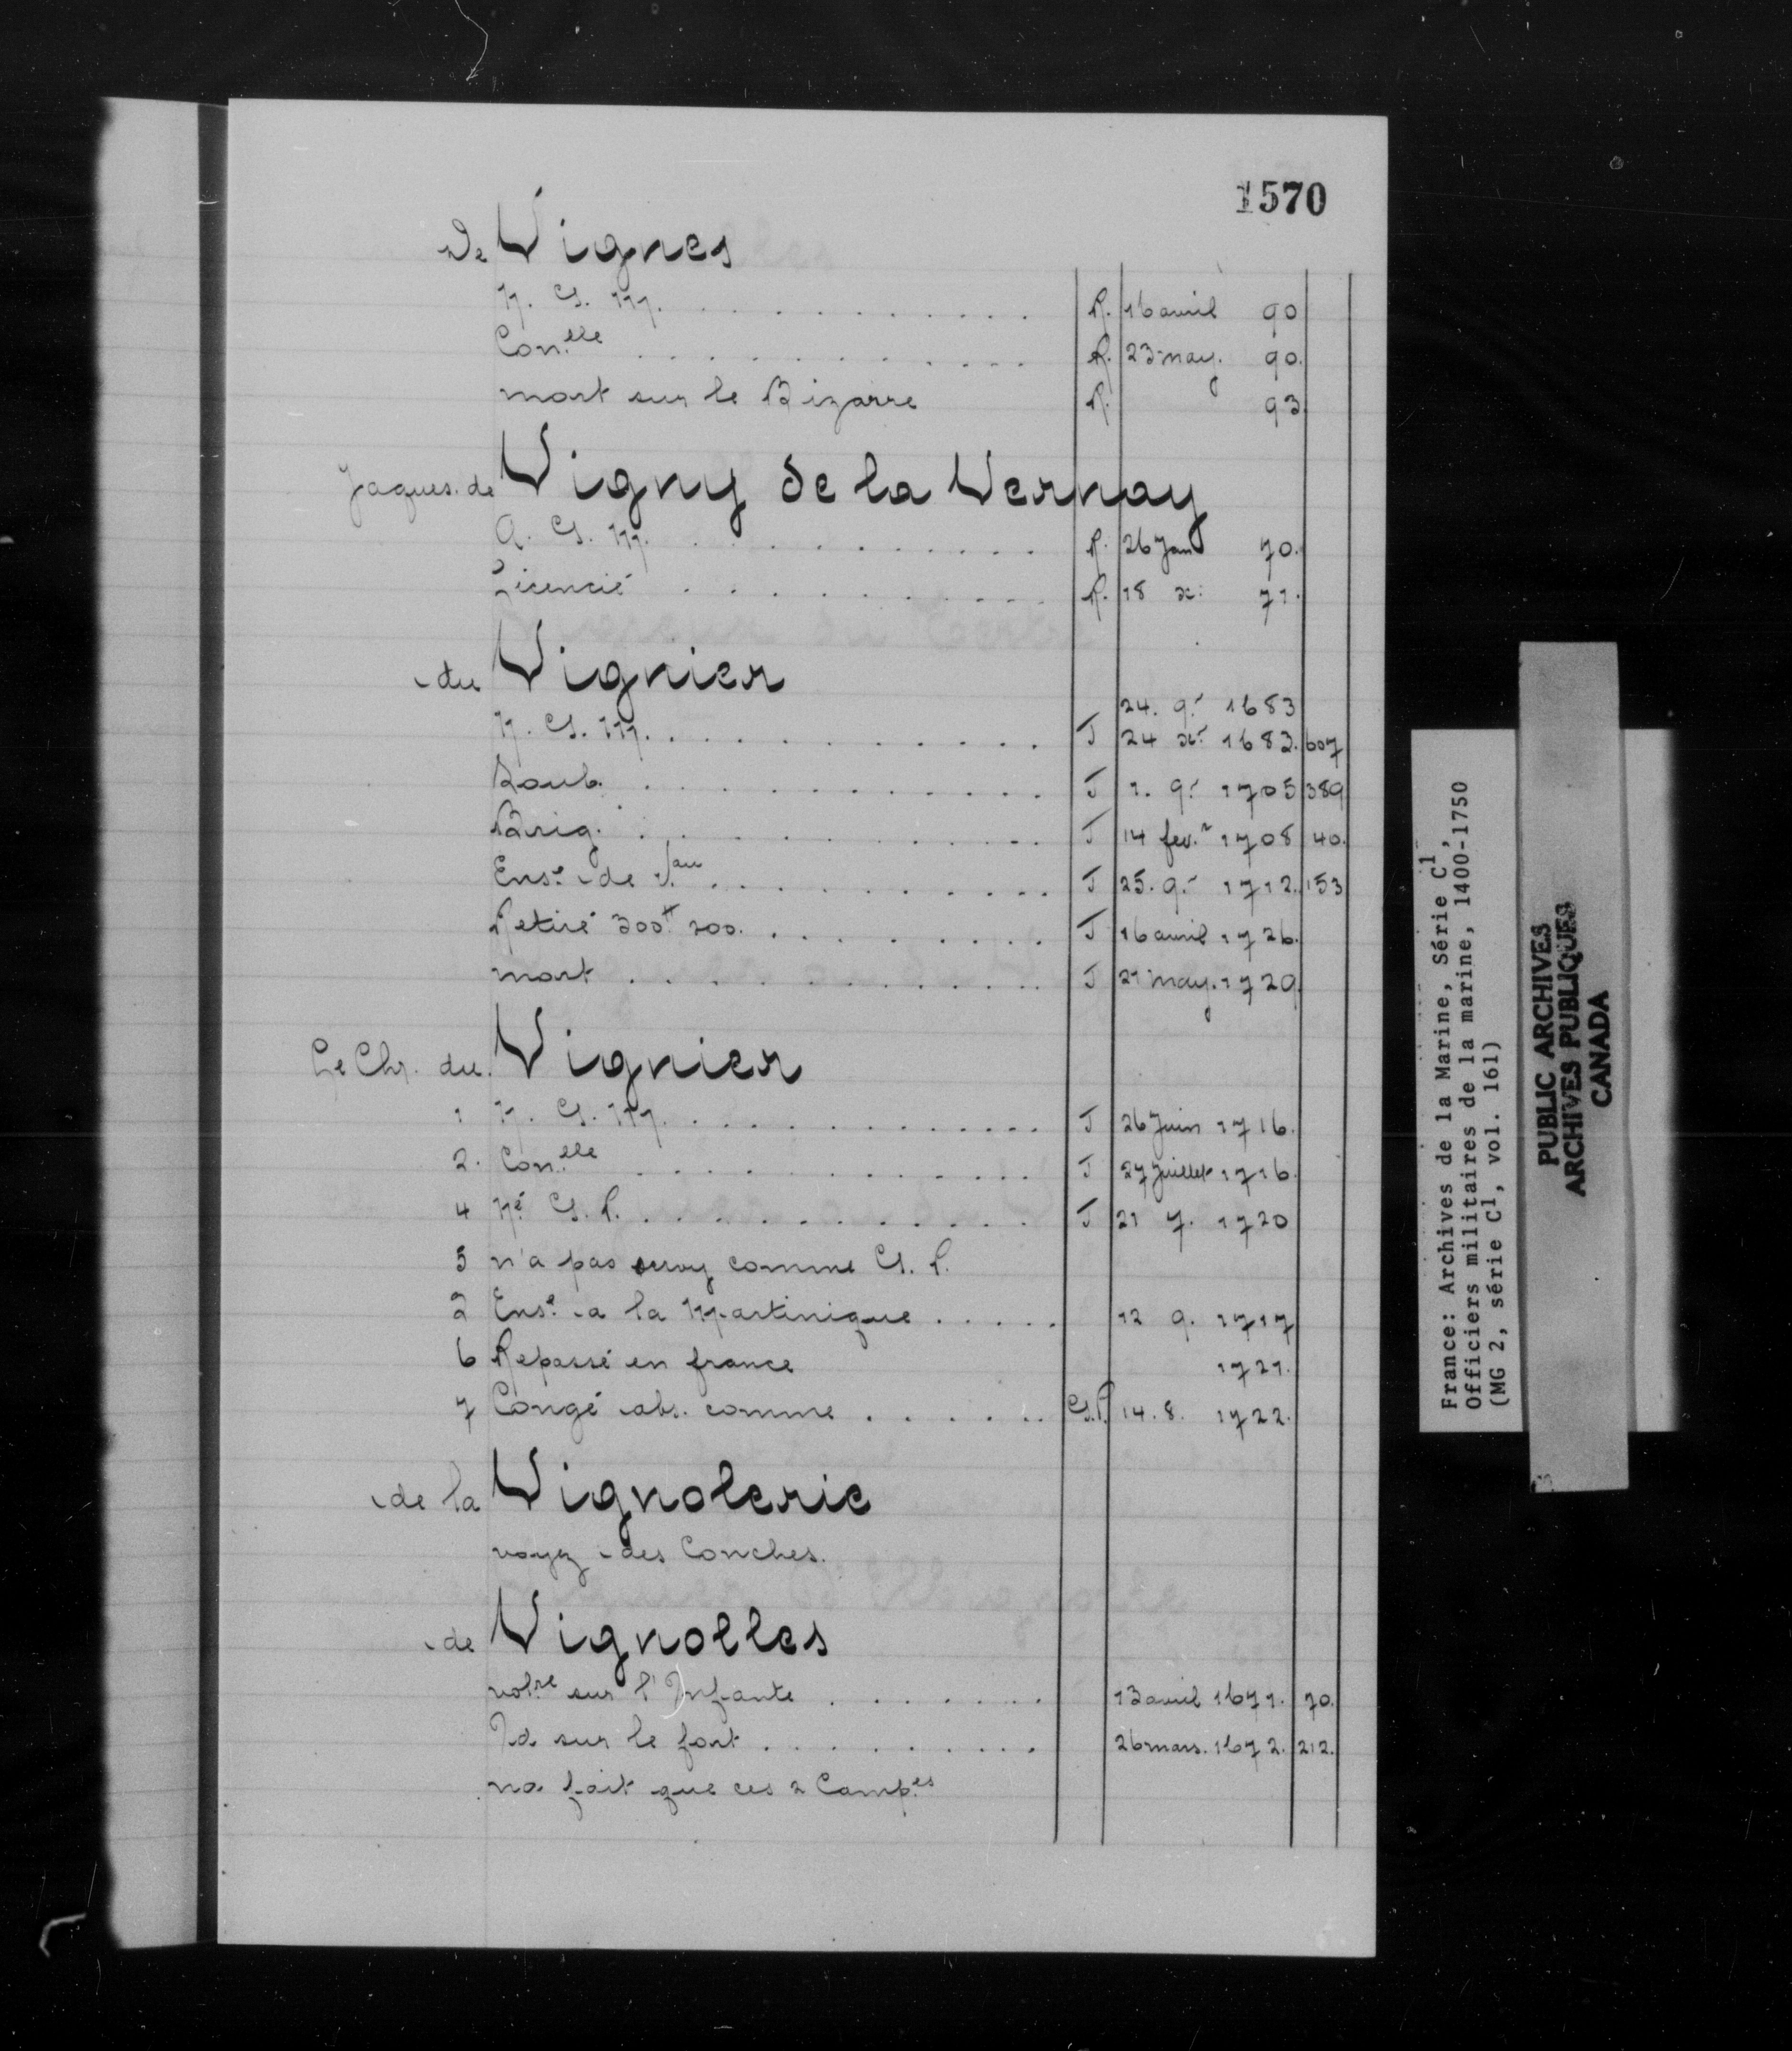 1570
De Vignes
N. G. M. . . . . . . . . . . . R. 16 avril 90
Con.elle . . . . . . . . . . . . R. 23 may. 90.
mort sur le Bizarre R. 93
Jaques. de Vigny de la Vernay
A. G. M. . . . . . . . . . . R. 26 Jan 70.
Licencié . . . . . . . . . . . R. 18 x: 71.
du Vignier
24. 9.r 1683
N. G. M. . . . . . . . . . . . J 24 x.r 1682. 607
Soub. . . . . . . . . . . . J 1. 9.r 1705 389
Brig. . . . . . . . . . . . J 14 fev.r 1708 40.
Ens.e de V.au . . . . . . . . . . J 25. 9.r 1712. 153
Retiré 300tt 200. . . . . . . . . J 16 avril 1726.
mort . . . . . . . . . . . . J 21 may. 1729.
Le Chr. du. Vignier
1 N. G. M. . . . . . . . . . . . J 26 Juin 1716.
2. Con.elle . . . . . . . . . . . J 27 Juillet 1716.
4 Né G. P. . . . . . . . . . . . J 21 7. 1720
5 n'a pas servy comme G. P.
2 Ens.e a la Martinique . . . . . 12 9. 1717
6 Repassé en france 1721.
7 Congé abs. comme . . . . . . G.P. 14. 8. 1722.
de la Vignolerie
voyez des Conches.
de Vignolles
vol.re sur l'Infante . . . . . . . 13 avril 1671. 70.
Id sur le fort . . . . . . . . . . 26 mars. 1672. 212.
na fait que ces 2 Camp.es
France: Archives de la Marine, Série C1,
Officiers militaires de la marine, 1400-1750
(MG 2, série C1, vol. 161)
PUBLIC ARCHIVES
ARCHIVES PUBLIQUES
CANADA